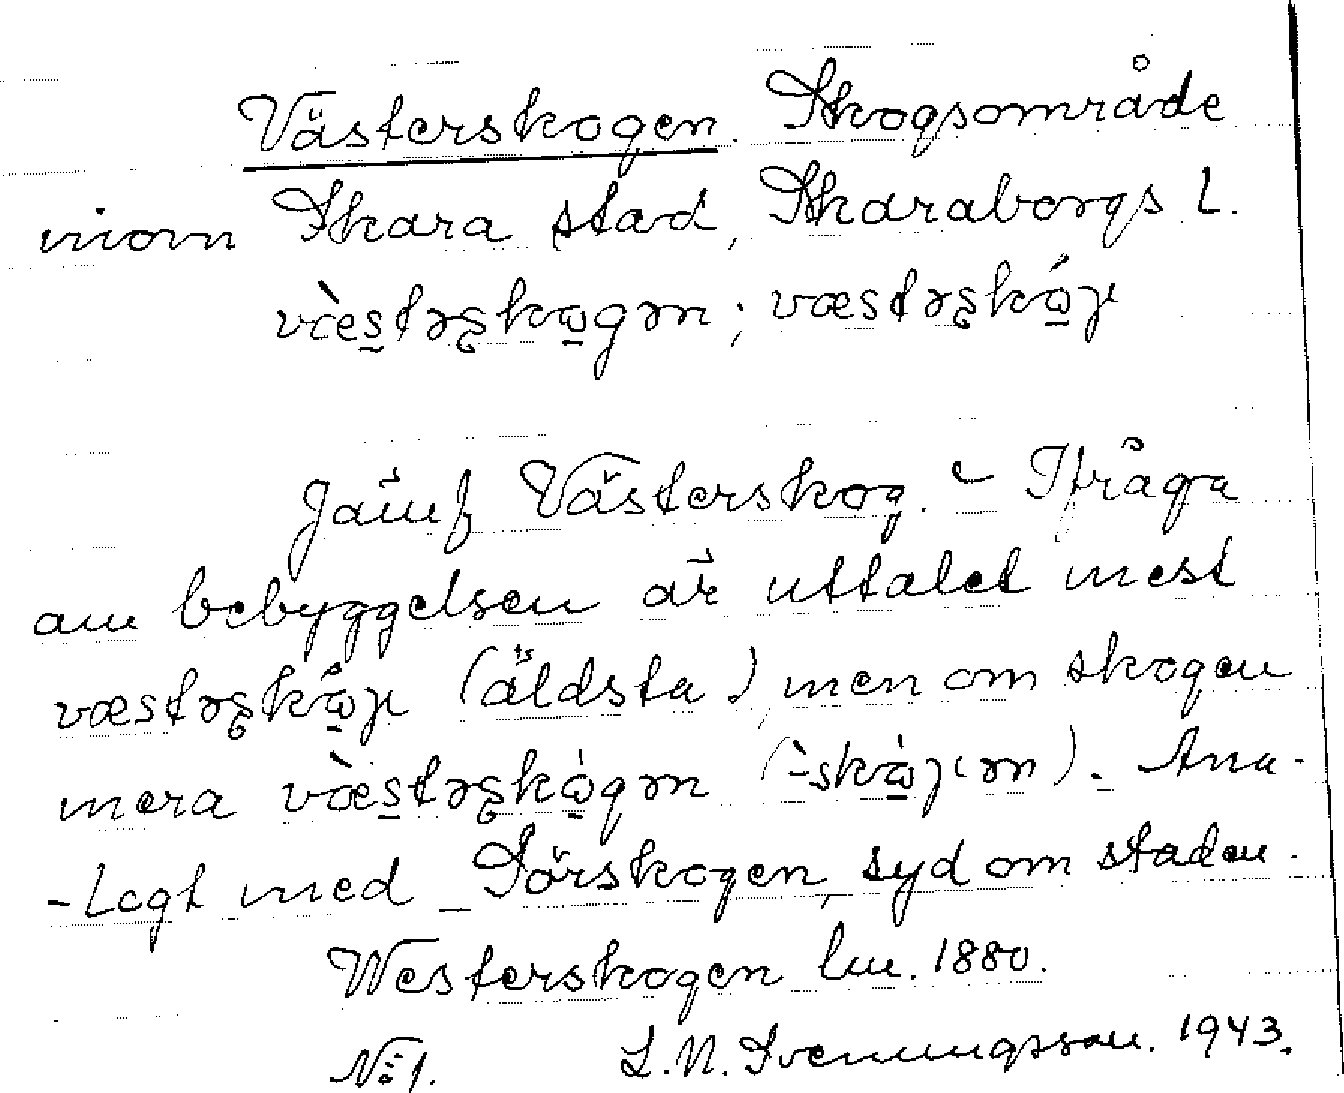 Västerskogen. Skogsområde
inom Skara stad, Skaraborgs l.
væ̀stərskωgən; væstərskώjı
Jämf Västerskog. – Ifråga
om bebyggelsen är uttalet mest
væstərskώjı (äldsta), men om skogen
mera væ̀stərskὼgən (-̀skὼjıən). Ana-
-logt med Sörskogen, syd om staden.
Westerskogen lm. 1880.
N:o 1. L.N. Svenungsson. 1943.